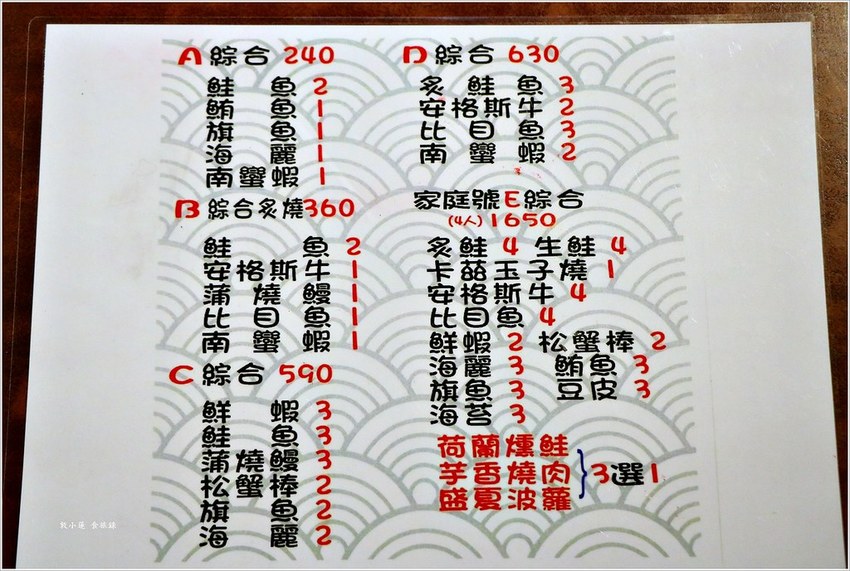 A 綜合 240
鮭魚 2
鮪魚 1
旗魚 1
海麗 1
南蠻蝦 1
B 綜合炙燒 360
鮭魚 2
安格斯牛 1
蒲燒鰻 1
比目魚 1
南蠻蝦 1
C 綜合 590
鮮蝦 3
鮭魚 3
蒲燒鰻 3
松蟹棒 2
旗魚 2
海麗 2
D 綜合 630
炙鮭魚 3
安格斯牛 2
比目魚 3
南蠻蝦 2
家庭號E綜合
(4人) 1650
炙鮭 4 生鮭 4
卡茲玉子燒 1
安格斯牛 4
比目魚 4
鮮蝦 2 松蟹棒 2
海麗 3 鮪魚 3
旗魚 3 豆皮 3
海苔 3
荷蘭燻鮭
芋香燒肉 }3選1
盛夏波蘿